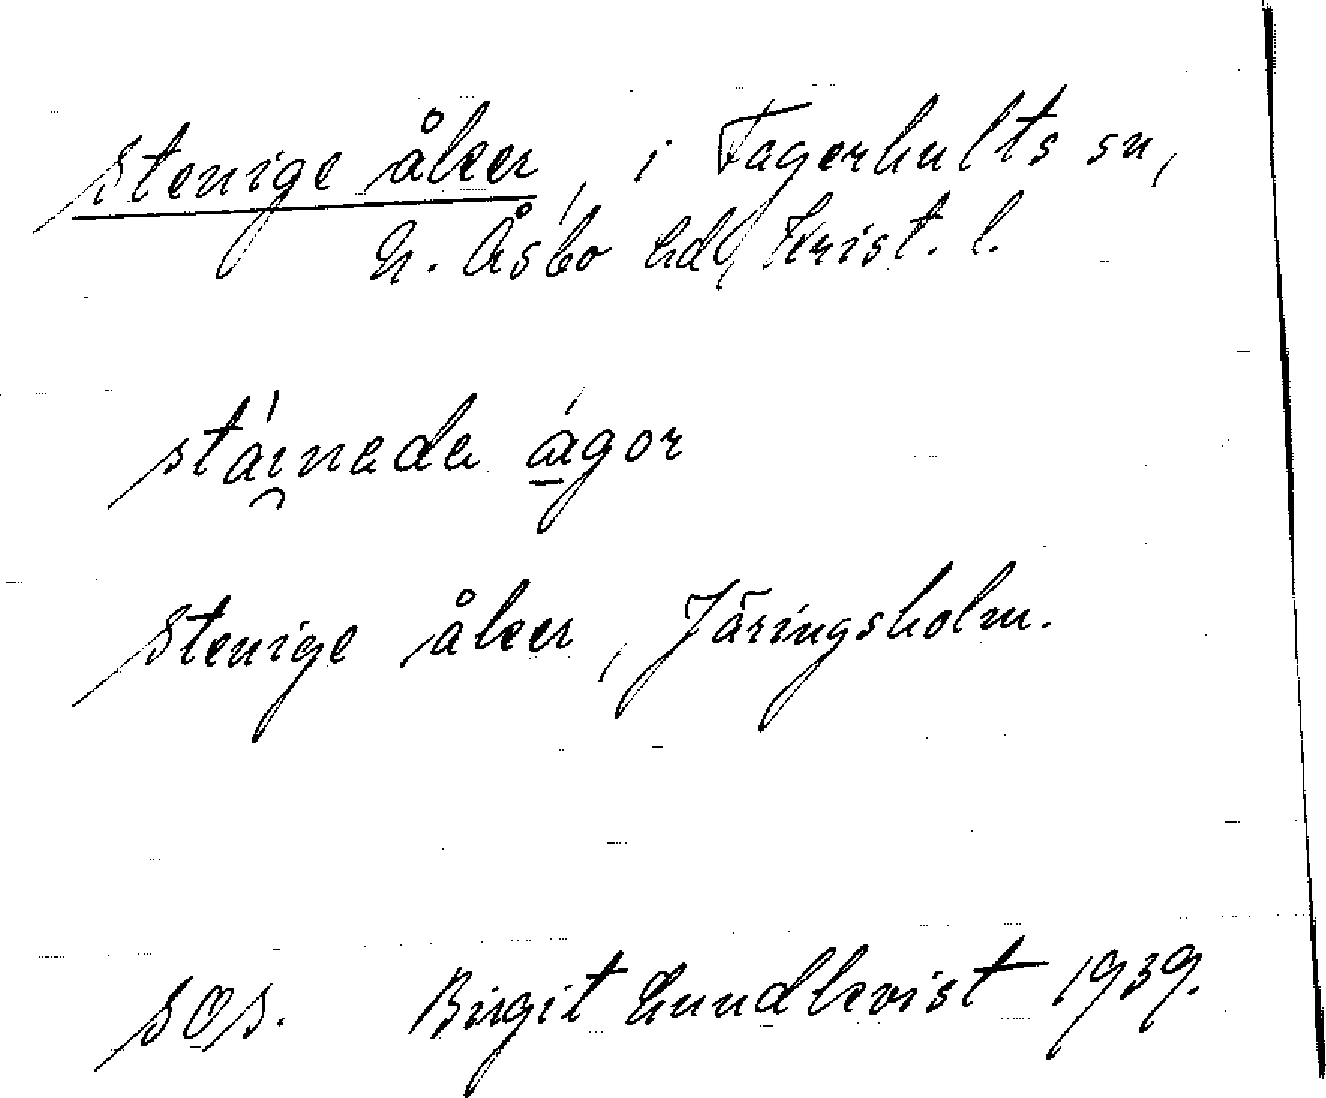 Stenige åker, i Fagerhults sn,
N. Åsbo hd, Krist. l.
stáınada ágor
Stenige åker, Järingsholm.
sos. Birgit Lundkvist 1939.